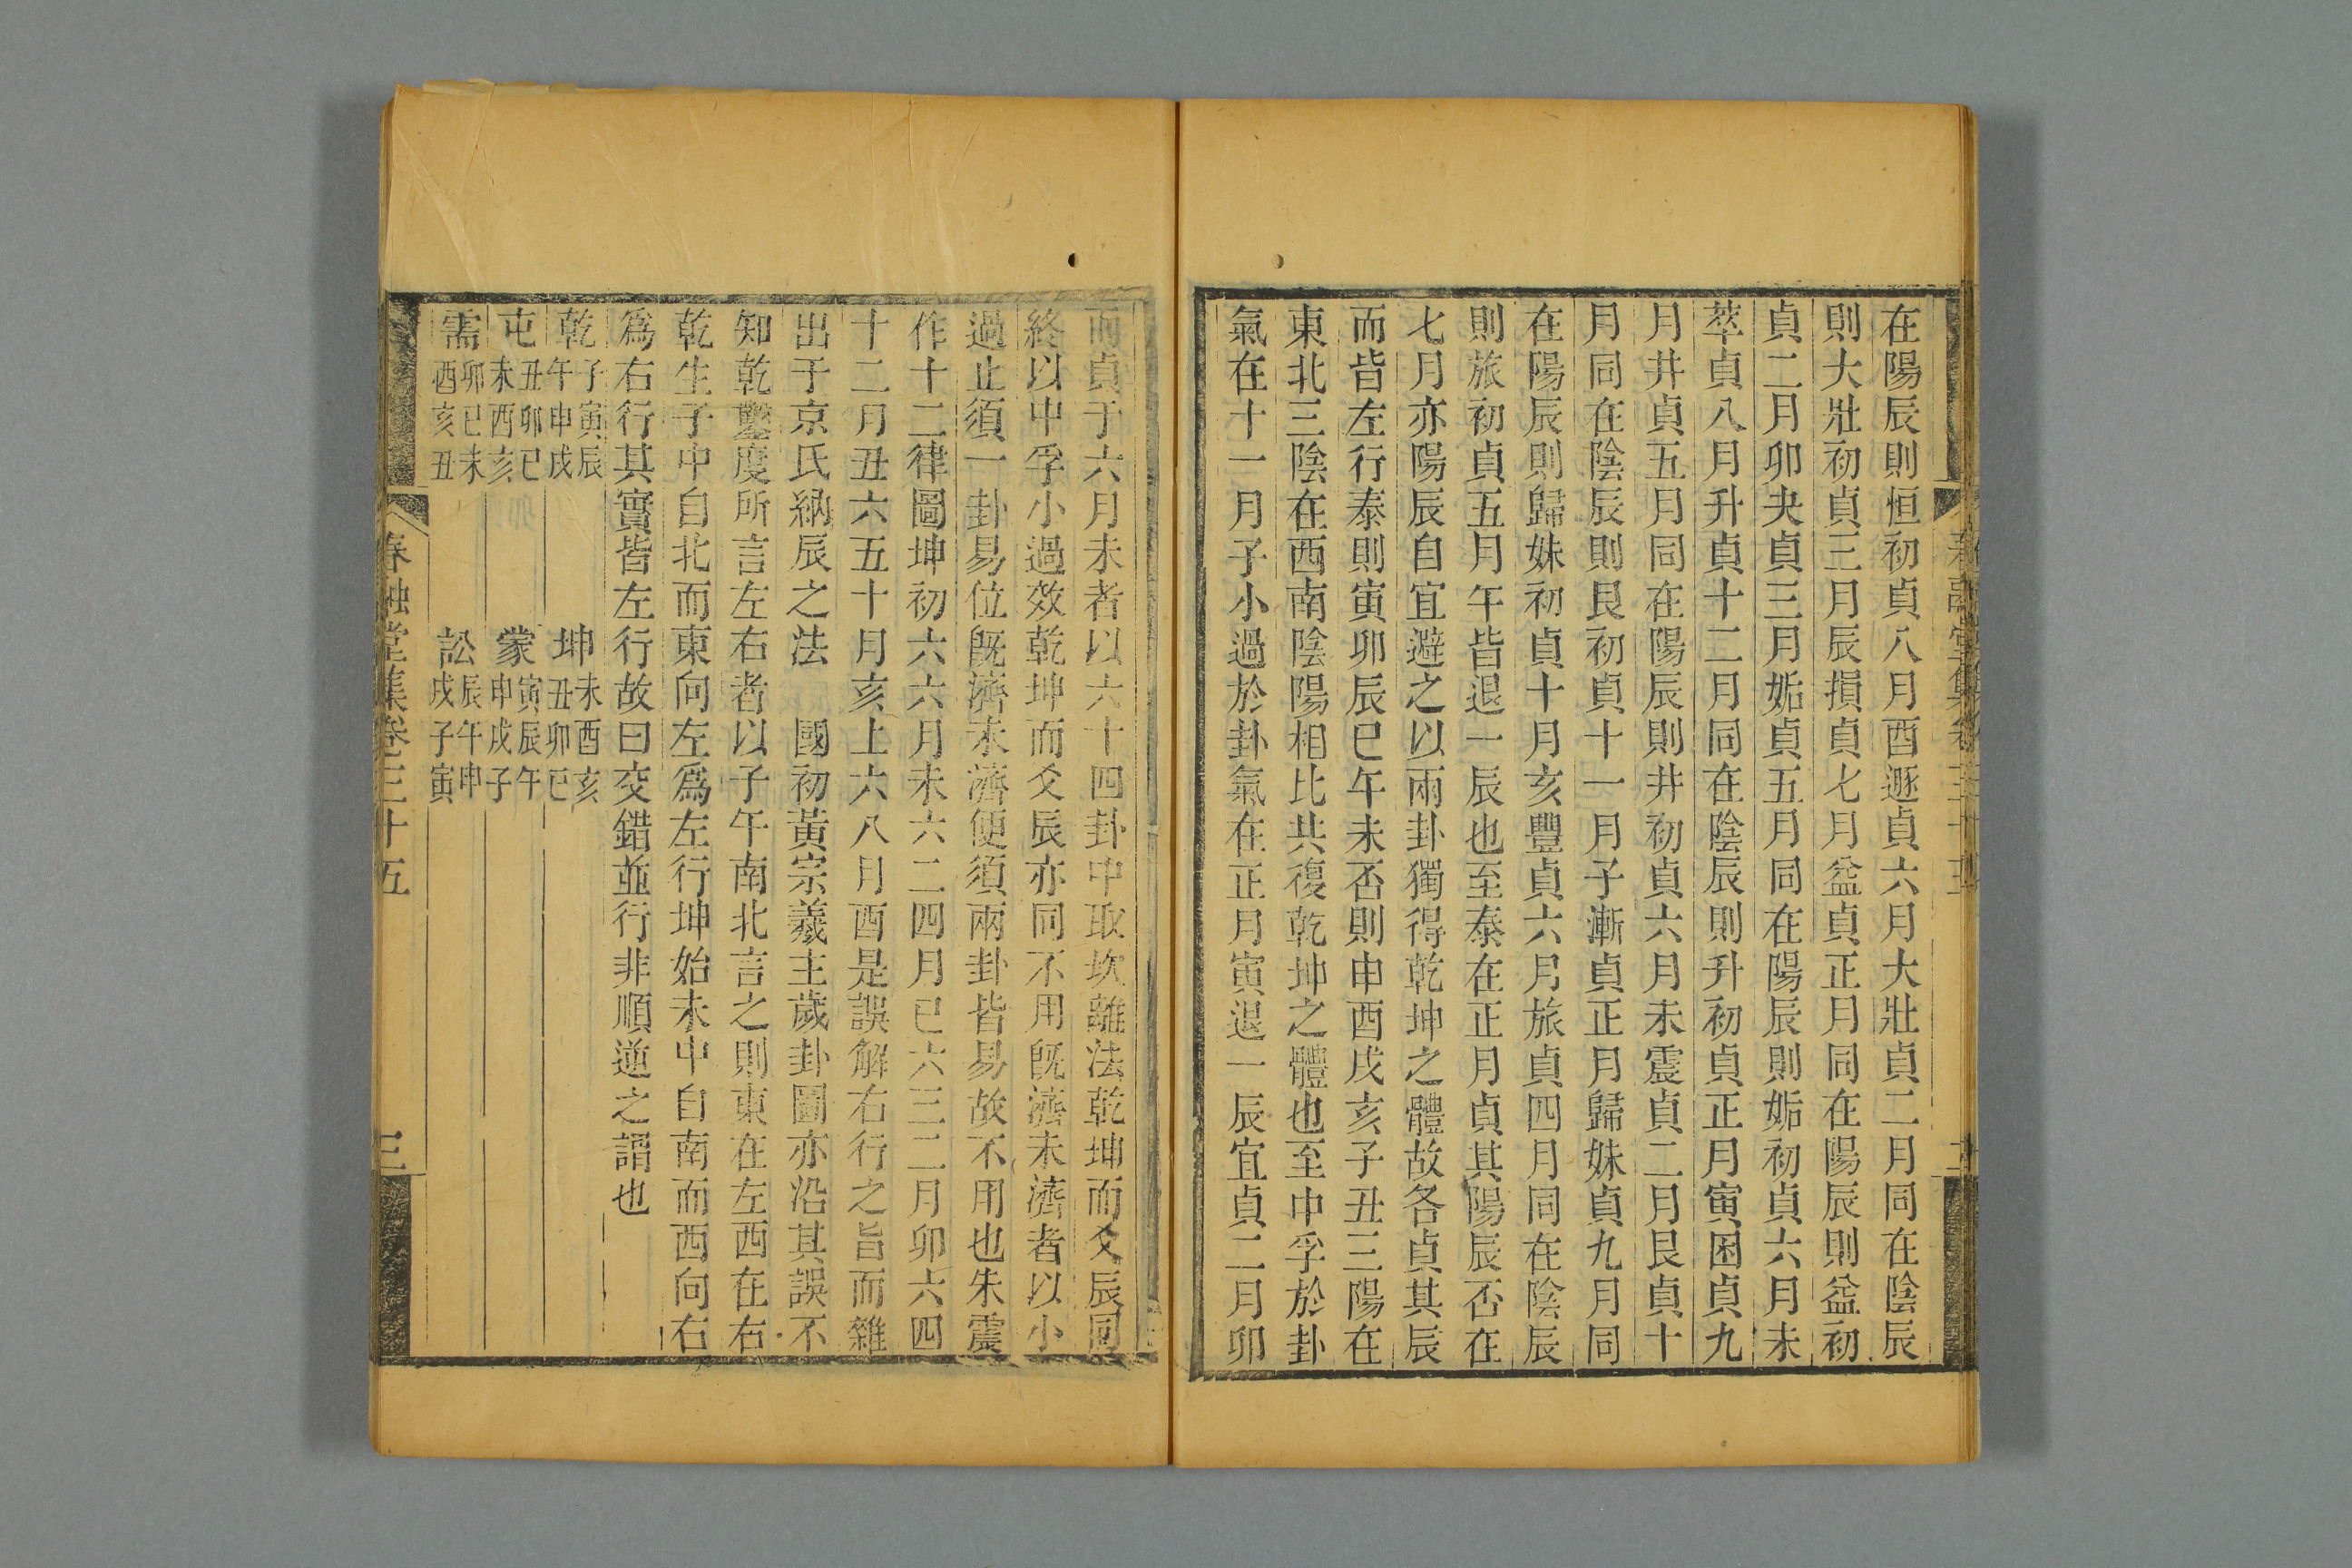 在陽辰則恒初貞八月酉遯貞六月大壯貞二月同在陰辰
則大壯初貞三月辰損貞七月益貞正月同在陽辰則益初
貞二月卯夬貞三月姤貞五月同在陽辰則姤初貞六月未
萃貞八月升貞十二月同在陰辰則升初貞正月寅困貞九
月井貞五月同在陽辰則井初貞六月未震貞二月艮貞十
月同在陰辰則艮初貞十一月子漸貞正月歸妹貞九月同
在陽辰則歸妹初貞十月亥豐貞六月旅貞四月同在陰辰
則旅初貞五月午皆退一辰也至泰在正月貞其陽辰否在
七月亦陽辰自宜避之以兩卦獨得乾坤之體故各貞其辰
而皆左行泰則寅卯辰巳午未否則申酉戌亥子丑三陽在
東北三陰在西南陰陽相比共復乾坤之體也至中孚於卦
氣在十一月子小過於卦氣在正月寅退一辰宜貞二月卯
而貞于六月未者以六十四卦中取坎離法乾坤而爻辰同
終以中孚小過效乾坤而爻辰亦同不用旣濟未濟者以小
過止須一卦易位旣濟未濟便須兩卦皆易故不用也朱震
作十二律圖坤初六六月未六二四月巳六三二月卯六四
十二月丑六五十月亥上六八月酉是誤解右行之旨而雜
出于京氏納辰之法　國初黃宗羲主歲卦圖亦沿其誤不
知乾鑿度所言左右者以子午南北言之則東在左西在右
乾生子中自北而東向左爲左行坤始未中自南而西向右
爲右行其實皆左行故曰交錯並行非順逆之謂也
乾子寅辰午申戌　坤未酉亥丑卯巳
屯丑卯巳未酉亥　蒙寅辰午申戌子
需卯巳未酉亥丑　訟辰午申戌子寅
春融堂集卷三十五　三